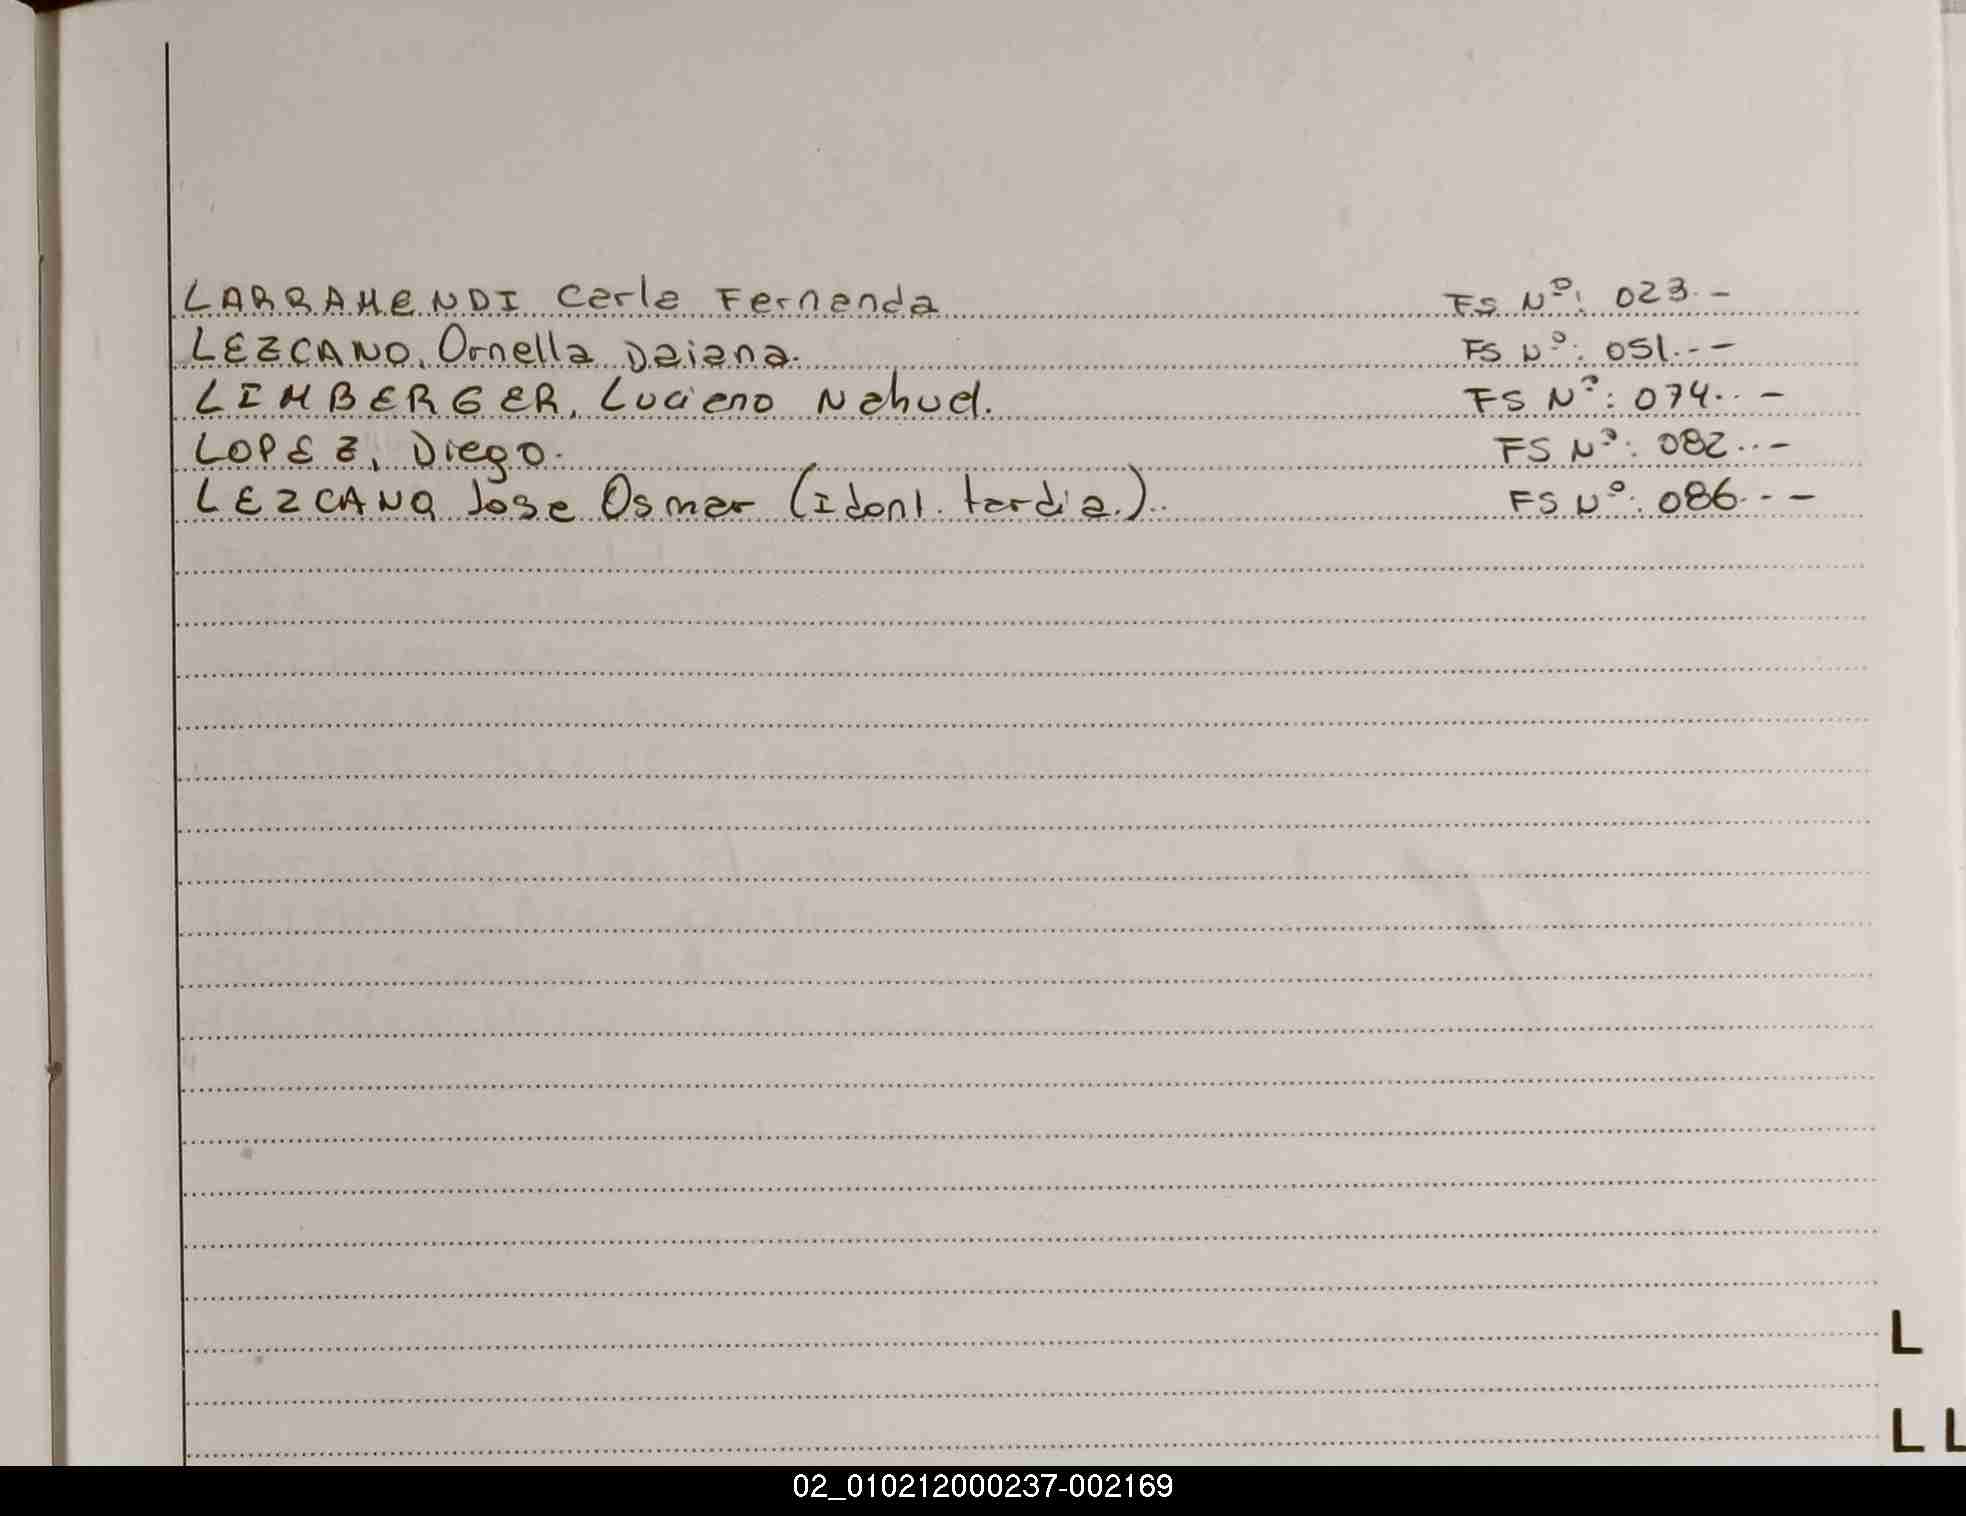 LARRAMENDI Carla Fernanda FS Nº: 023.-
LEZCANO, Ornella Daiana. FS Nº: 051.--
LIMBERGER, Luciano Nahuel. FS Nº: 074..-
LOPEZ, Diego. FS Nº: 082..-
LEZCANO, Jose Osmar (Idont. tardia.).. FS Nº: 086.--
L
LL
02_010212000237-002169